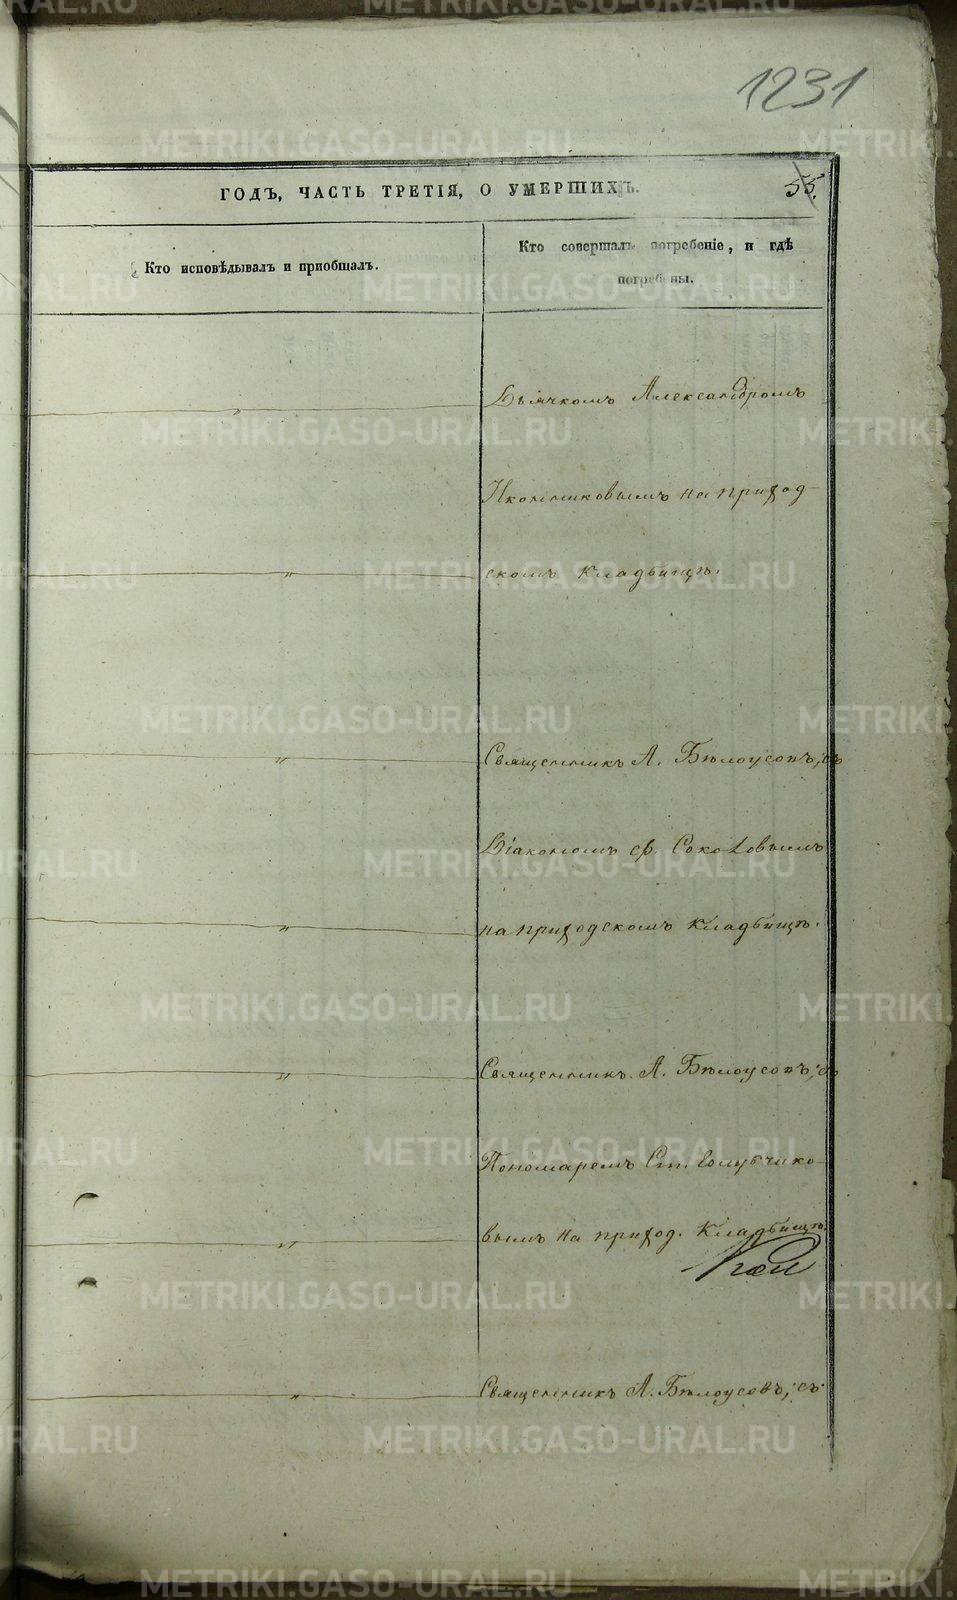 1231
ГОДЪ, ЧАСТЬ ТРЕТІЯ, О УМЕРШИХЪ.
55.
Кто исповѣдывалъ и пріобщалъ.
Кто совершалъ погребеніе, и гдѣ
погребены.
Дьячкомъ Александромъ
Иконниковымъ на приход-
скомъ кладбищѣ.
Священникъ А. Бѣлоусовъ, съ
Діакономъ Соколовымъ
на приходскомъ кладбищѣ.
Священникъ А. Бѣлоусовъ, съ
Пономаремъ Ст. Голубчико-
вымъ на приход. кладбищѣ.
Священникъ А. Бѣлоусовъ, съ
METRIKI.GASO-URAL.RU